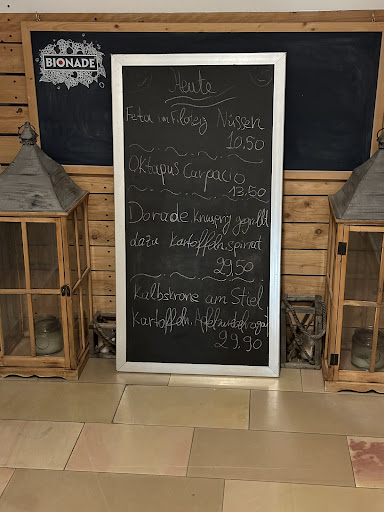 BIONADE
Heute
Feta im Filoteig Nüssen
10,50
Oktapus Carpacio
13,50
Dorade knusprig gegrillt
dazu Kartoffeln, spinat
29,50
Kalbskrone am Stiel
Kartoffeln,
29,90